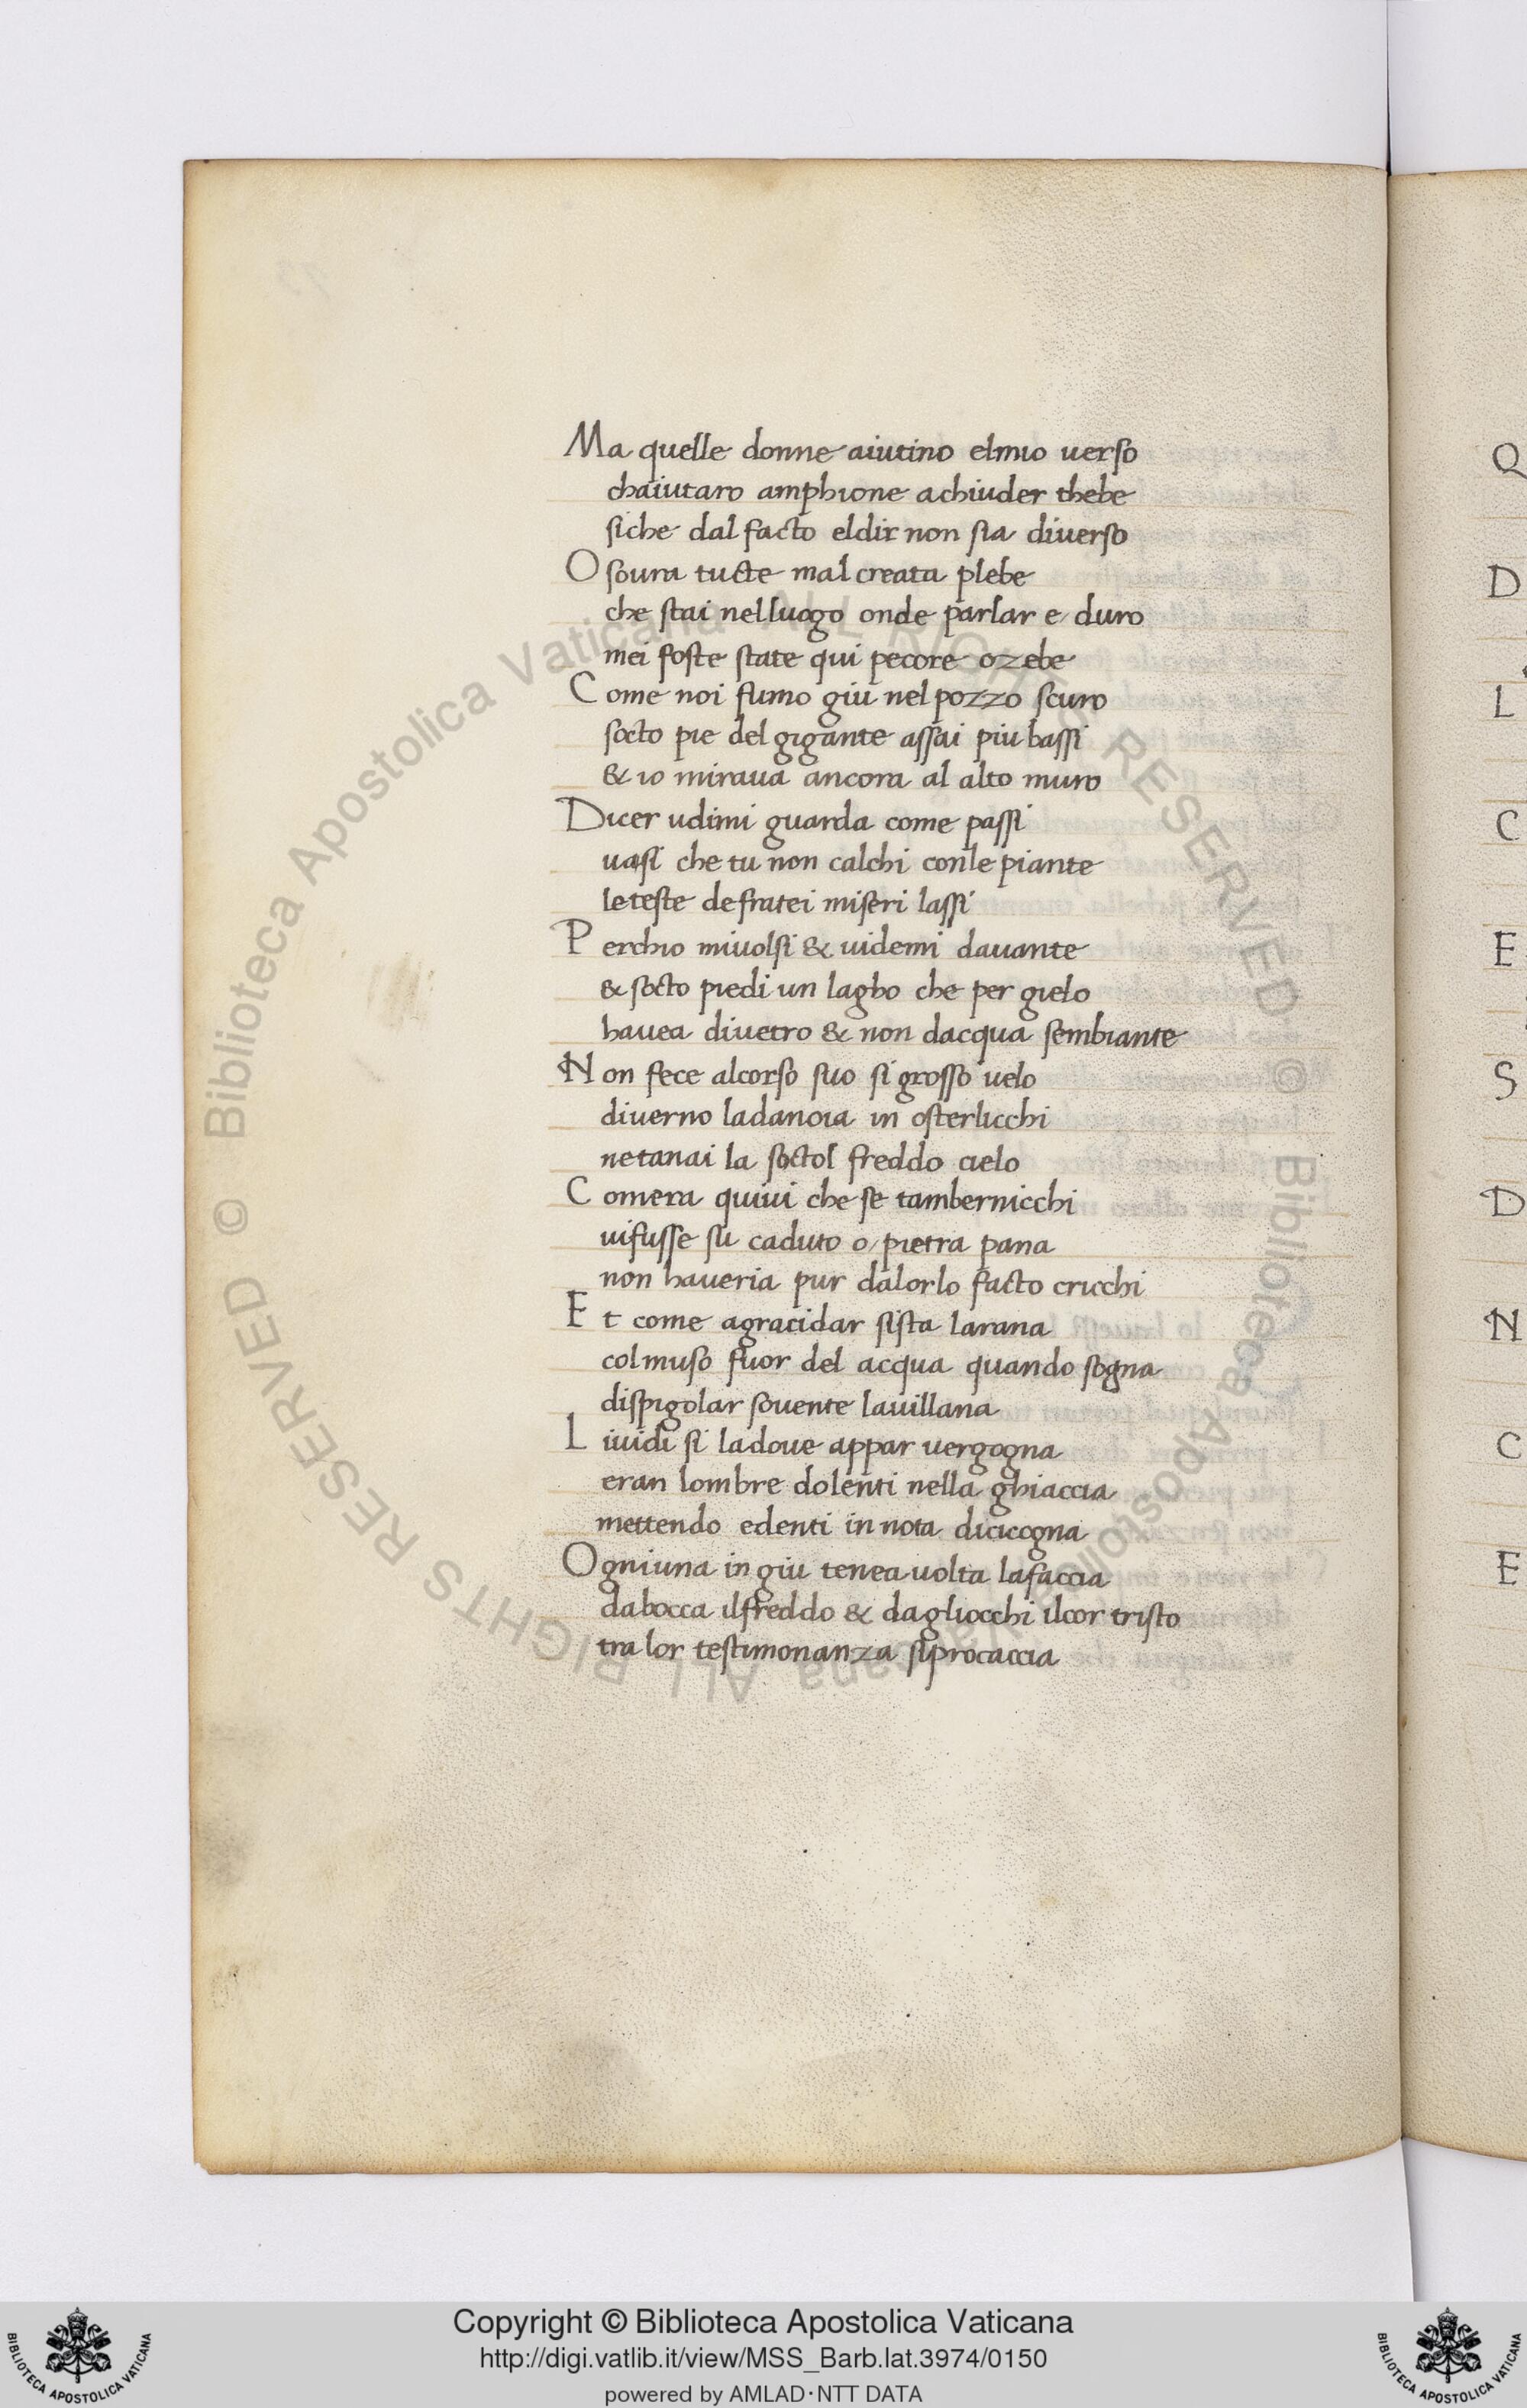 Ma quelle donne aiutino elmio uerso
chaiutaro amphione achiuder thebe
siche dal facto eldir non sia diuerso
O soura tucte mal creata plebe
che stai nelluogo onde parlar e duro
mei foste state qui pecore ozebe
Come noi fumo giu nel pozzo scuro
socto pie del gigante assai piu bassi
& io miraua ancora al alto muro
Dicer udimi guarda come passi
uasi che tu non calchi conle piante
leteste defratei miseri lassi
Perchio miuolsi & uidemi dauante
& socto piedi un lagho che per gielo
hauea diuetro & non dacqua sembiante
Non fece alcorso suo si grosso uelo
diuerno ladanoia in osterlicchi
netanai la soctol freddo cielo
Comera quiui che se tambernicchi
uifusse su caduto o/pietra pana
non haueria pur dalorlo facto cricchi
Et come agracidar sista larana
colmuso fuor del acqua quando sogna
dispigolar souente lauillana
Liuidi si ladoue appar uergogna
eran lombre dolenti nella ghiaccia
mettendo edenti in nota dicicogna
Ogniuna in giu tenea uolta lafaccia
dabocca ilfreddo & dagliocchi ilcor tristo
tra lor testimonanza siprocaccia
Q
D
L
C
E
S
D
N
C
E
© Biblioteca Apostolica Vaticana ALL RIGHTS RESERVED © Biblioteca Apostolica Vaticana ALL RIGHTS RESERVED
Copyright © Biblioteca Apostolica Vaticana
http://digi.vatlib.it/view/MSS_Barb.lat.3974/0150
powered by AMLAD·NTT DATA
BIBLIOTECA APOSTOLICA VATICANA
BIBLIOTECA APOSTOLICA VATICANA